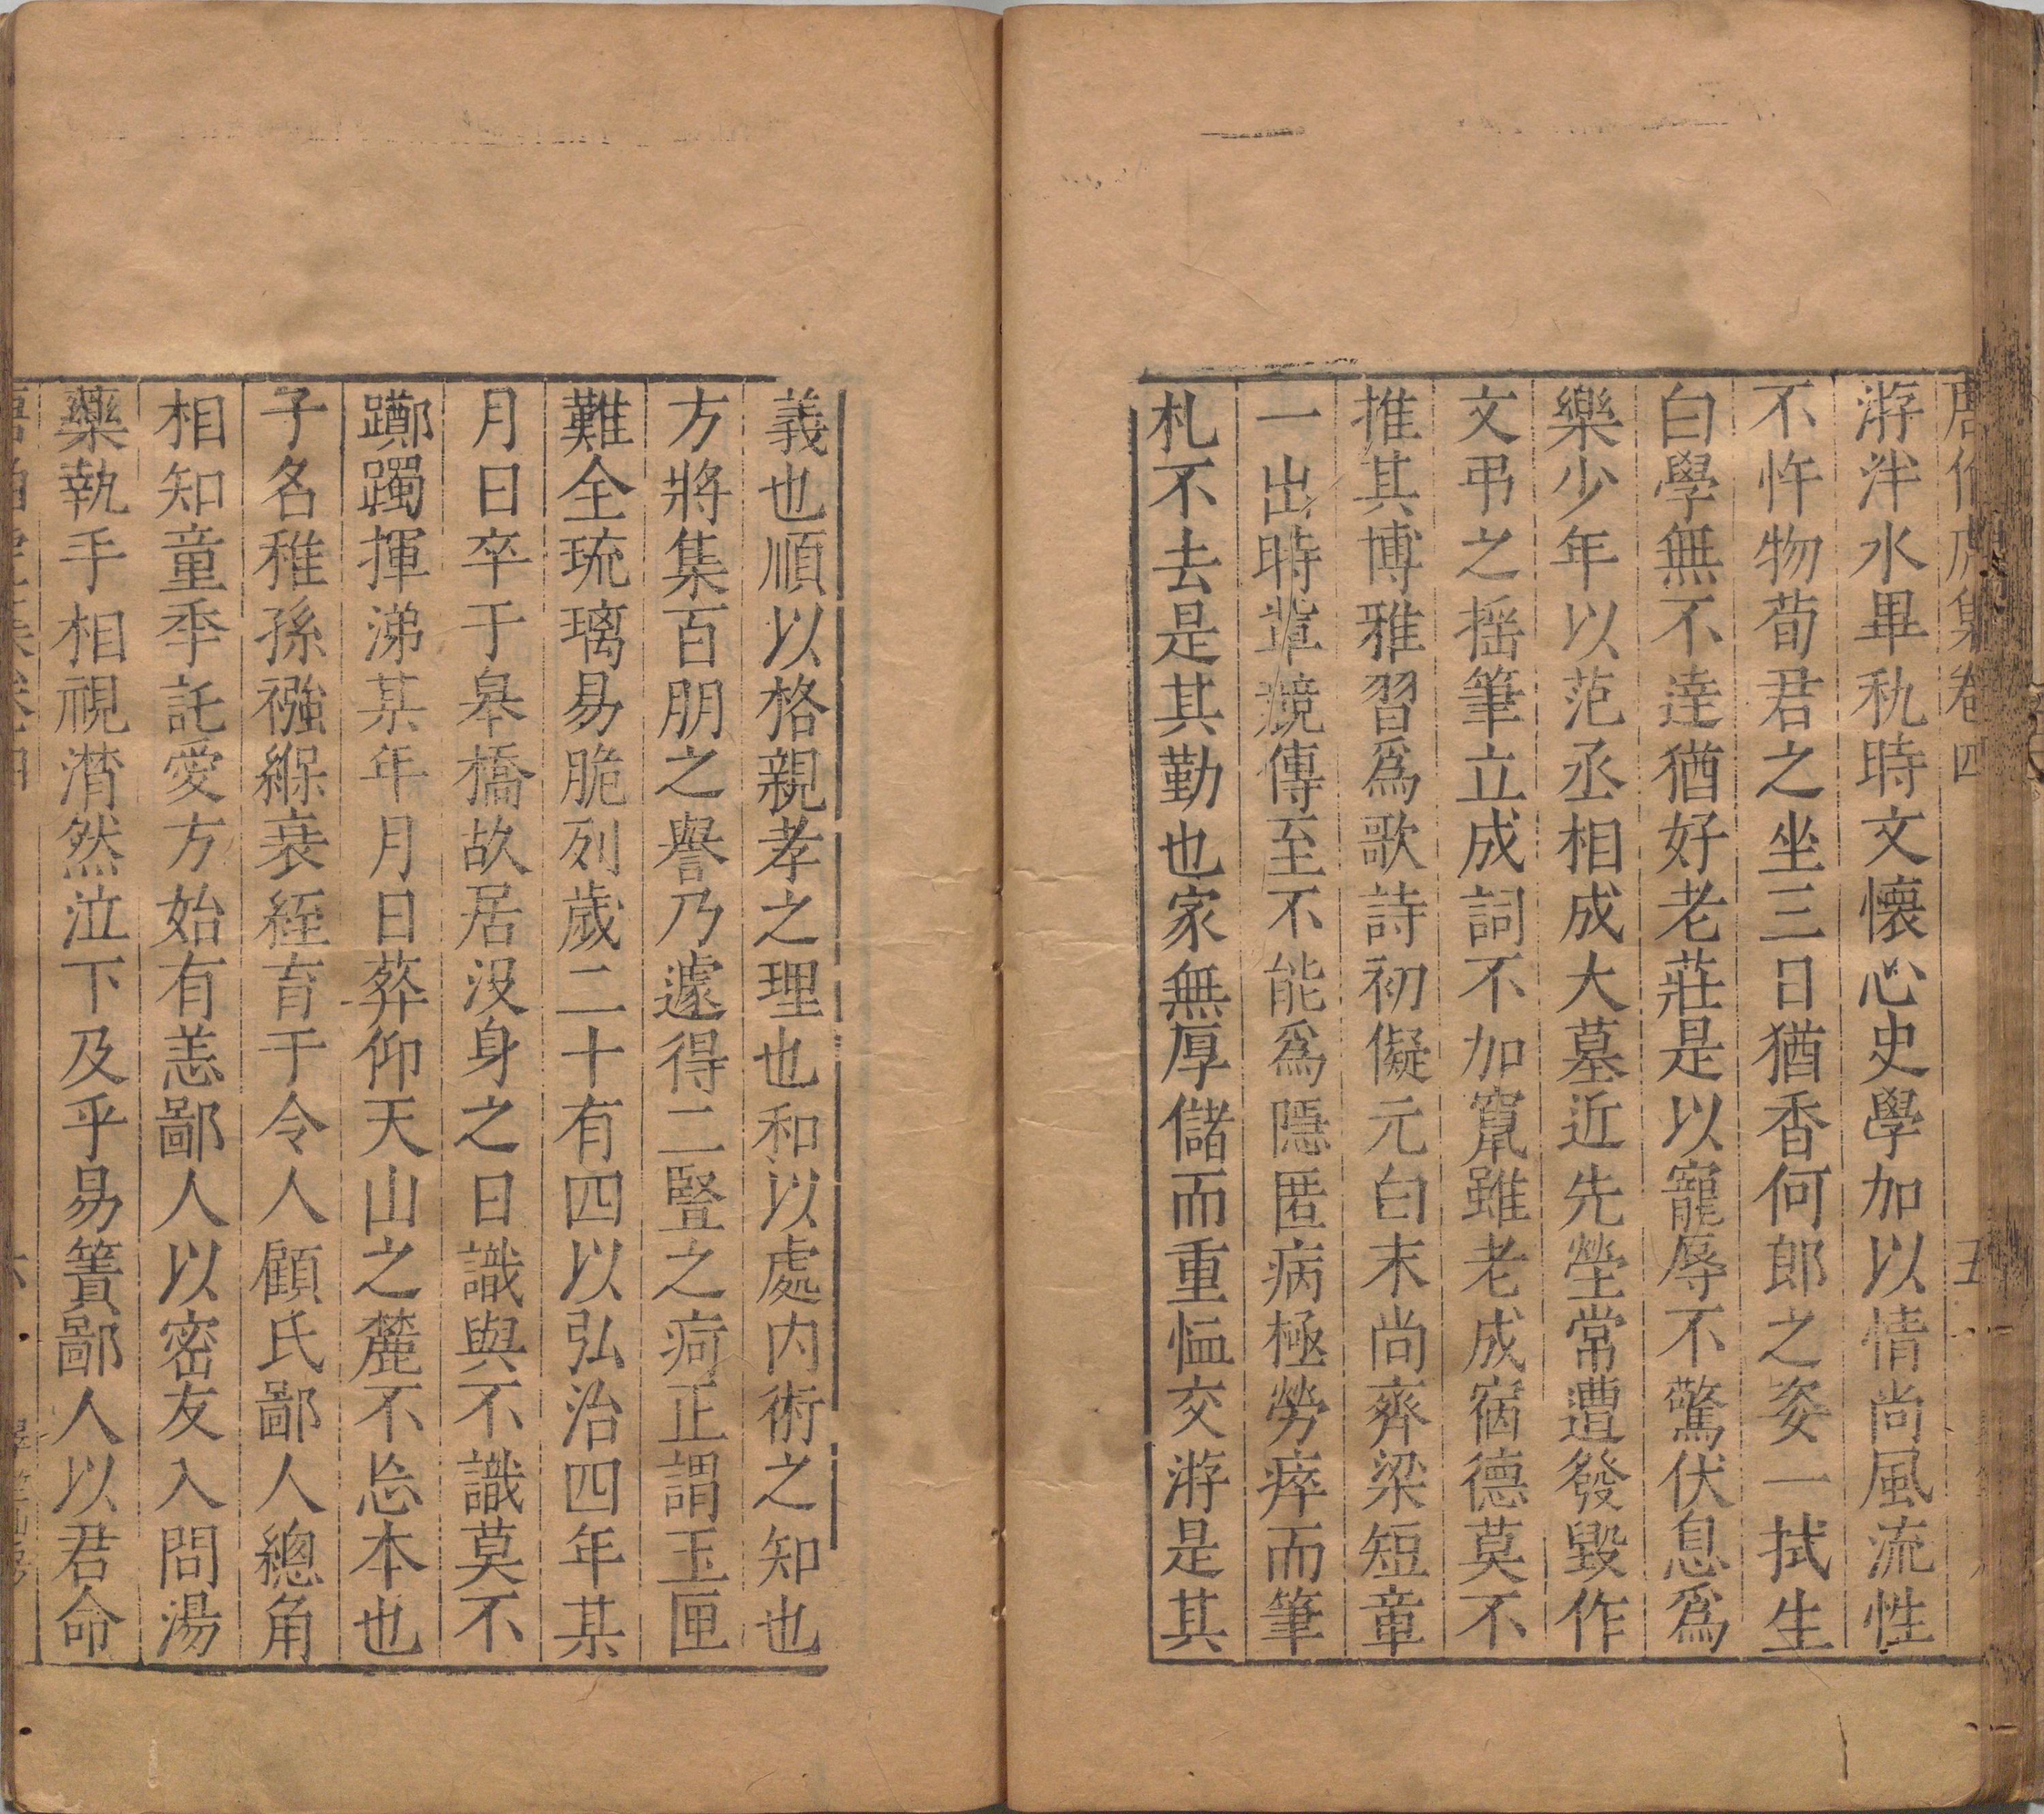 唐伯虎集卷四 五
游泮水畢秇時文懷心史學加以情尚風流性
不忤物荀君之坐三日猶香何郎之姿一拭生
白學無不達猶好老莊是以寵辱不驚伏息爲
樂少年以范丞相成大墓近先塋常遭發毀作
文弔之搖筆立成詞不加竄雖老成宿德莫不
推其博雅習爲歌詩初儗元白末尚齊梁短章
一出時輩競傳至不能爲隱匿病極勞瘁而筆
札不去是其勤也家無厚儲而重恤交游是其
義也順以格親孝之理也和以處内術之知也
方將集百朋之譽乃遽得二豎之疴正謂玉匣
難全琉璃易脆列歲二十有四以弘治四年某
月日卒于皋橋故居沒身之日識與不識莫不
躑躅揮涕某年月日葬仰天山之麓不忘本也
子名稚孫襁緥衰絰育于令人顧氏鄙人總角
相知童秊託愛方始有恙鄙人以密友入問湯
藥執手相視潸然泣下及乎易簀鄙人以君命
唐伯虎集卷四 六